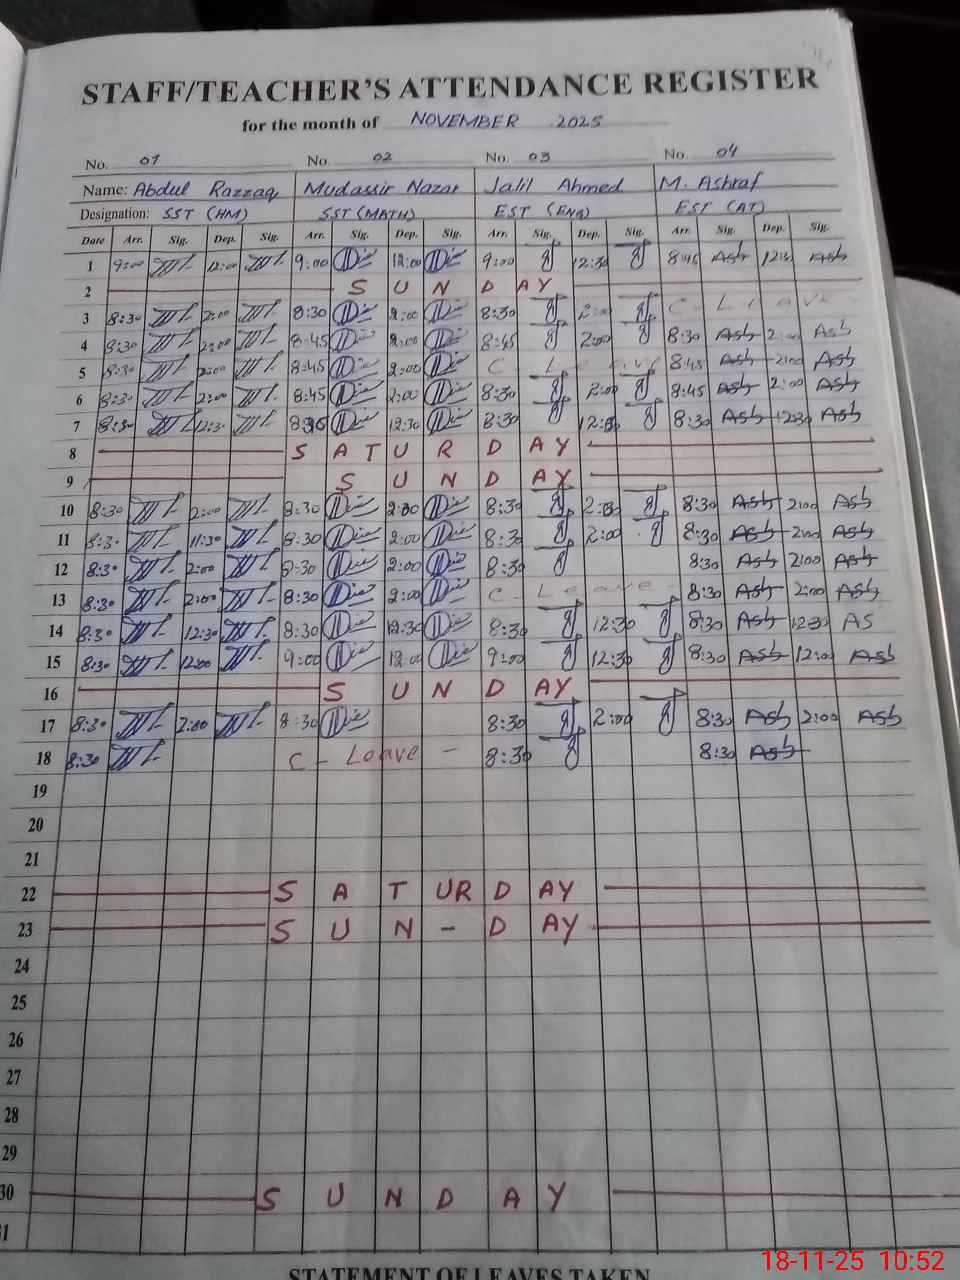 STAFF/TEACHER'S ATTENDANCE REGISTER
for the month of NOVEMBER 2025
No. 01 No. 02 No. 03 No. 04
Name: Abdul Razzaq Mudassir Nazar Jalil Ahmed M. Ashraf
Designation: SST (HM) SST (MATH) EST (ENG) EST (AT)
Date Arr. Sig. Dep. Sig. Arr. Sig. Dep. Sig. Arr. Sig. Dep. Sig. Arr. Sig. Dep. Sig.
1 9:00 12:00 9:00 12:00 9:00 12:30 8:45 Ash 12:30 Ash
2 S U N D AY
3 8:30 2:00 8:30 2:00 8:30 2:00 C - Leave
4 8:30 2:00 8:45 2:00 8:45 2:00 8:30 Ash 2:00 Ash
5 8:30 2:00 8:45 2:00 C - Leave 8:45 Ash 2:00 Ash
6 8:30 2:00 8:45 2:00 8:30 2:00 8:45 Ash 2:00 Ash
7 8:30 12:30 12:30 8:30 12:30 8:30 Ash 12:30 Ash
8 S A T U R D AY
9 S U N D AY
10 8:30 2:00 8:30 2:00 8:30 2:00 8:30 Ash 2:00 Ash
11 8:30 11:30 8:30 2:00 8:30 2:00 8:30 Ash 2:00 Ash
12 8:30 2:00 8:30 2:00 8:30 8:30 Ash 2:00 Ash
13 8:30 2:00 8:30 2:00 C - Leave - 8:30 Ash 2:00 Ash
14 8:30 12:30 8:30 12:30 8:30 12:30 8:30 Ash 12:30 AS
15 8:30 12:00 9:00 12:00 9:00 12:30 8:30 Ash 12:00 Ash
16 S U N D AY
17 8:30 2:00 8:30 8:30 2:00 8:30 Ash 2:00 Ash
18 8:30 C - Leave - 8:30 8:30 Ash
19
20
21
22 S A T UR D AY
23 S U N - D AY
24
25
26
27
28
29
30 S U N D A Y
31
STATEMENT OF LEAVES TAKEN
18-11-25 10:52